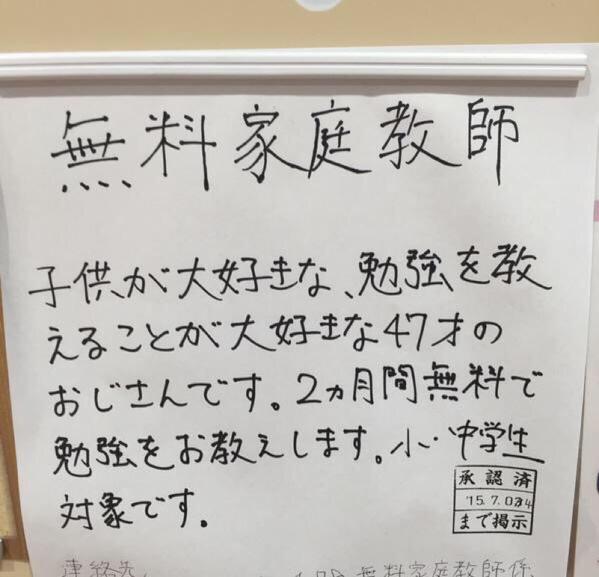 無料家庭教師
子供が大好きな、勉強を教
えることが大好きな47才の
おじさんです。2ヵ月間無料で
勉強をお教えします。小・中学生
対象です。
承認済
まで掲示
連絡先
無料家庭教師係